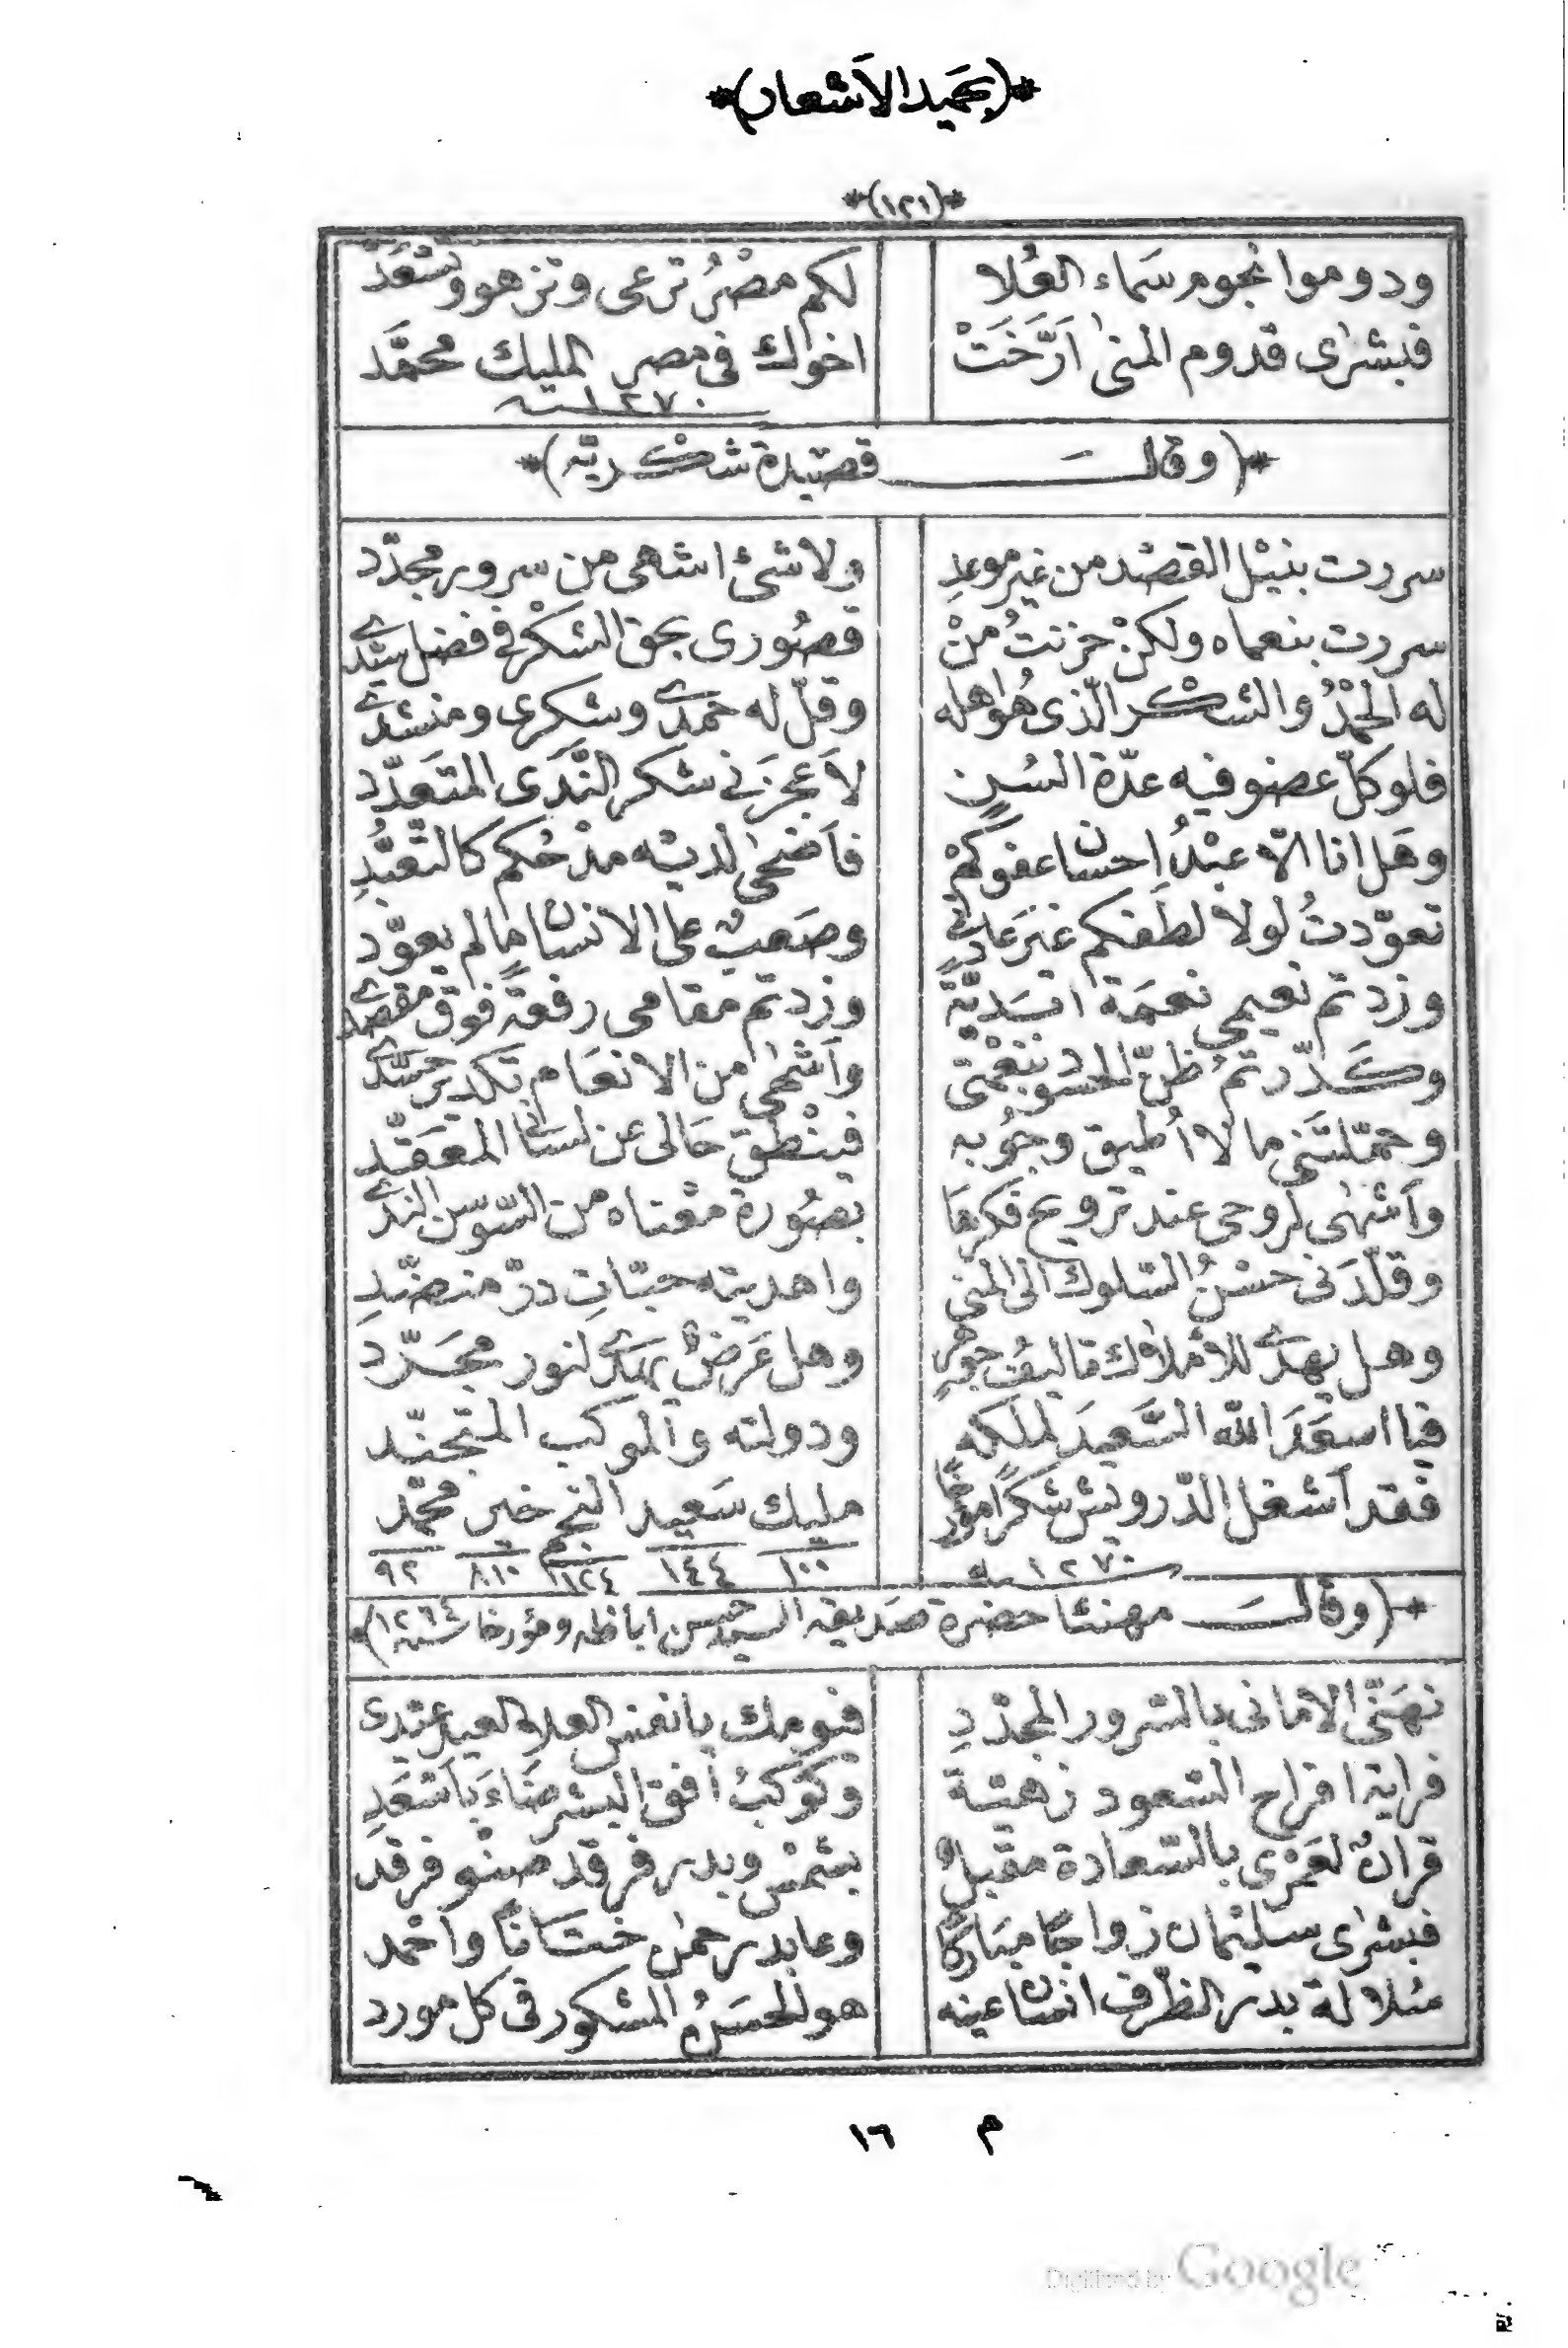 *(بحميد الاَشعار)*
*(١٢١)*
ودوموا نجوم سَماء العُلا لكم مصْرُ ترعى وتزهو وتسْعَدُ
فبشرٰى قدوم المنىٰ اَرَّخَتْ اخواك فى مصر المليك محمَّد
١٢٧٠ سنة
*(وقالَ قصيدة شكْريّه)*
سررت بنيْل القصْد من غير موعدِ ولا شئ اشهى من سرور مجدّد
سررت بنعماه ولكنْ حزنتُ منْ قصُورى بحق الشكْر فى فضل سيّدى
له الحمْدُ والشكْر الّذى هُو اهله وقلّ له حَمدى وشكرى ومنشدى
فلو كلّ عضو فيه عدّة السُنٍ لاَعجزَنى شكر النَّدَى المتعَدّد
وهَل انا الاّ عبْدُ احسان عفوكمْ فاَضحىٰ لديْه مدْحُكم كالتّعبُّدِ
تعوّدتُ لولا لطفكم غيَر عادتى وصَعبٌ على الانسان ما لم يعوّد
وزدتم نعيمى نعمَة اثَريّةً وزدتم مقامى رفعة فوق مقصدى
وكَدّرتمُ ظنّ الحسُود بنعْمتى واَشهٰى من الانعَام تكدير حسّدى
وحمّلتنى ما لا اُطيق وجُوبه فينْطق حَالى عن لسَانى المعَقّد
واَشهٰى لروحى عند ترويح فكرهَا بصُورة مغناه من السّوسن الندى
وقلّدَنى حسْنُ السّلوك الى المنى واهديته حبّاتِ درّ منضّدِ
وهل يهدى للأملاك تاليفُ جوهرٍ وهل عَرَضٌ يهدى لنور مجَرّدِ
فيا اسعَدَ الله السَّعيدَ لملكه ودولته والموكب المتجنّد
فقد اَشغل الدّرويش شكرًا مؤرخًا مليك سَعيد النجم خير محمّد
١٢٧٠ سنة ١٠٠ ١٤٤ ١٢٤ ٨١٠ ٩٢
*(وقالَ مهنئا حضرة صَديقه السيد حسن اباظه ومؤرخا سنة ١٢٦٤)*
تهَنّى الامانى بالسّرور المجدّدِ فيومك يا نفس العلا العيد عيّدى
فراية افراح السّعود زهيّة وكوكبُ اُفق البشر ضَاءَ باَسْعَدِ
قرانٌ لعَمرْى بالسّعادة مقبلٌ بشمْس وبدر فرقد صنْو فرقد
فبشرٰى سليْمان زواجًا مبَاركًا وعابد رحمٰن ختَانًا واحْمد
سُلالة بدر الظّرف انسَان عينه هو الحسَنُ المشكور فى كل مورد
م ١٦
Digitized by Google